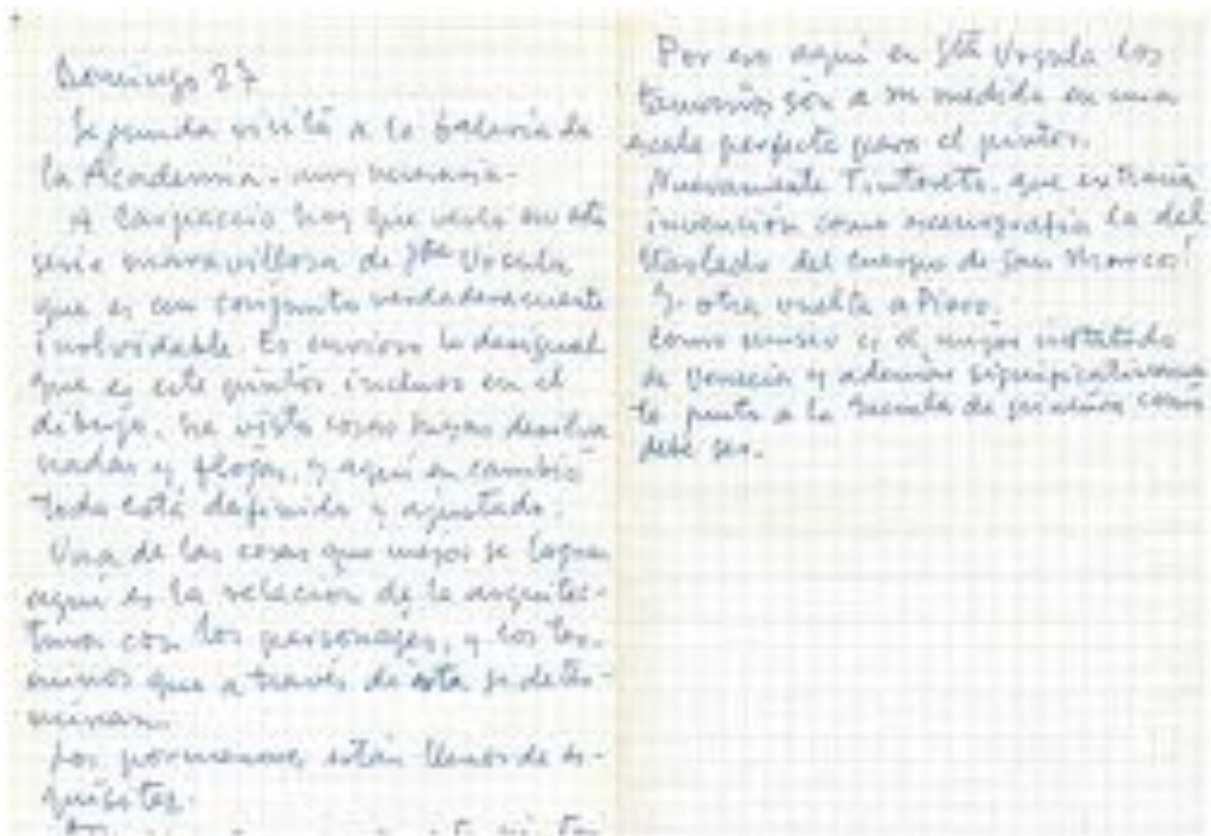 Domingo 27
Segunda visita a la Galería de
la Academia - muy necesaria -
A Carpaccio hay que verlo en esta
serie maravillosa de Sta Ursula
que es un conjunto verdaderamente
inolvidable. Es curioso lo desigual
que es este pintor incluso en el
dibujo, he visto cosas suyas desilva
nadas y flojas, y aquí en cambio
todo está definido y ajustado.
Una de las cosas que mejor se logran
aquí es la relación de la arquitec-
tura con los personajes, y los tér-
minos que a través de esta se deter-
minan.
Los pormenores están llenos de ex-
quisitez.
Por eso aquí en Sta Ursula los
tamaños son a su medida en una
escala perfecta para el pintor.
Nuevamente Tintoreto. que extraña
invención como escenografía la del
traslado del cuerpo de San Marcos!
Y otra vuelta a Piero.
Como museo es el mejor instalado
de Venecia y además significativamen
te junto a la Escuela de pintura como
debe ser.